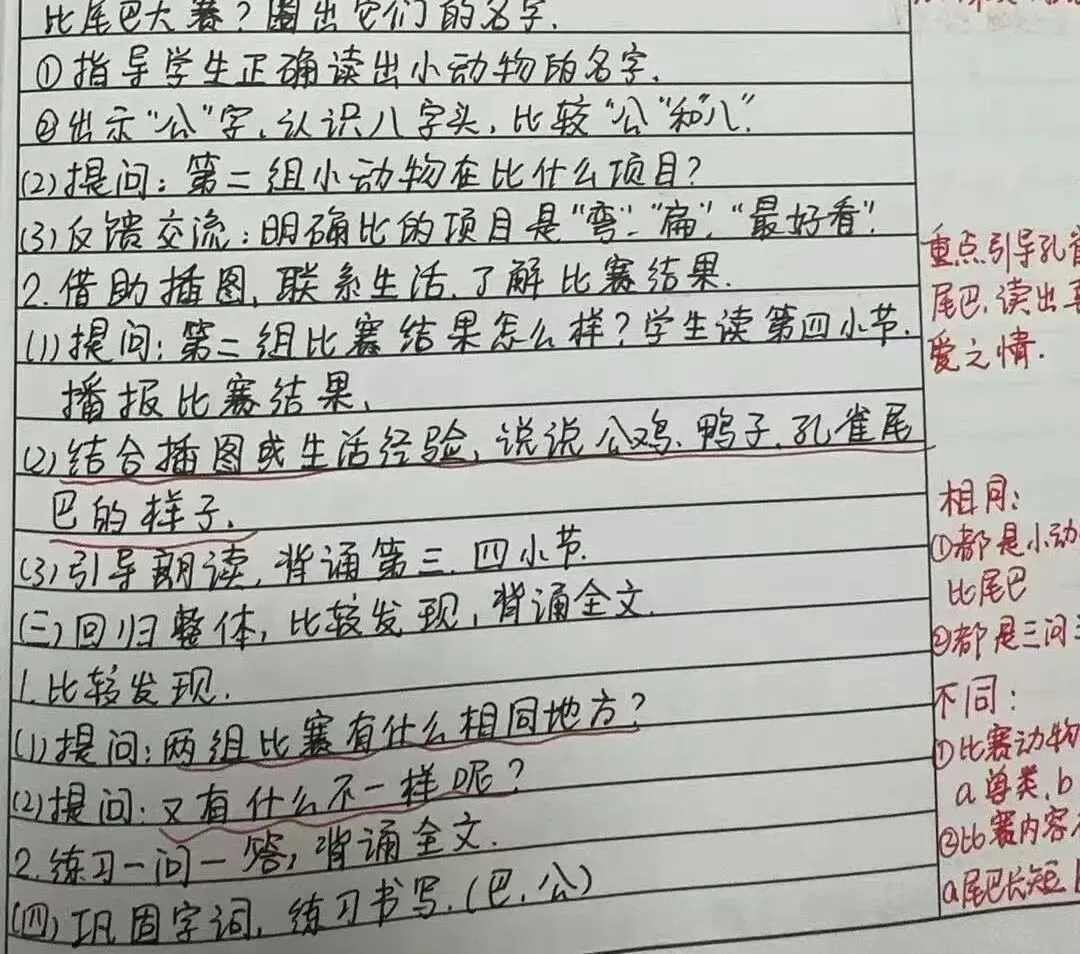 比尾巴大赛？圈出它们的名字.
①指导学生正确读出小动物的名字.
②出示“公”字,认识八字头,比较“公”和“八”.
(2)提问：第二组小动物在比什么项目？
(3)反馈交流：明确比的项目是“弯”、“扁”、“最好看”.
2.借助插图,联系生活.了解比赛结果.
(1)提问：第二组比赛结果怎么样？学生读第四小节.
播报比赛结果、
(2)结合插图或生活经验,说说公鸡、鸭子、孔雀尾
巴的样子.
(3)引导朗读,背诵第三、四小节.
(三)回归整体,比较发现,背诵全文.
1.比较发现.
(1)提问：两组比赛有什么相同地方？
(2)提问：又有什么不一样呢？
2.练习一问一答,背诵全文.
(四)巩固字词,练习书写.(巴、公)
重点引导孔雀
尾巴,读出
爱之情.
相同：
①都是小动
比尾巴
②都是三问
不同：
①比赛动物
a兽类、b
②比赛内容
a尾巴长短